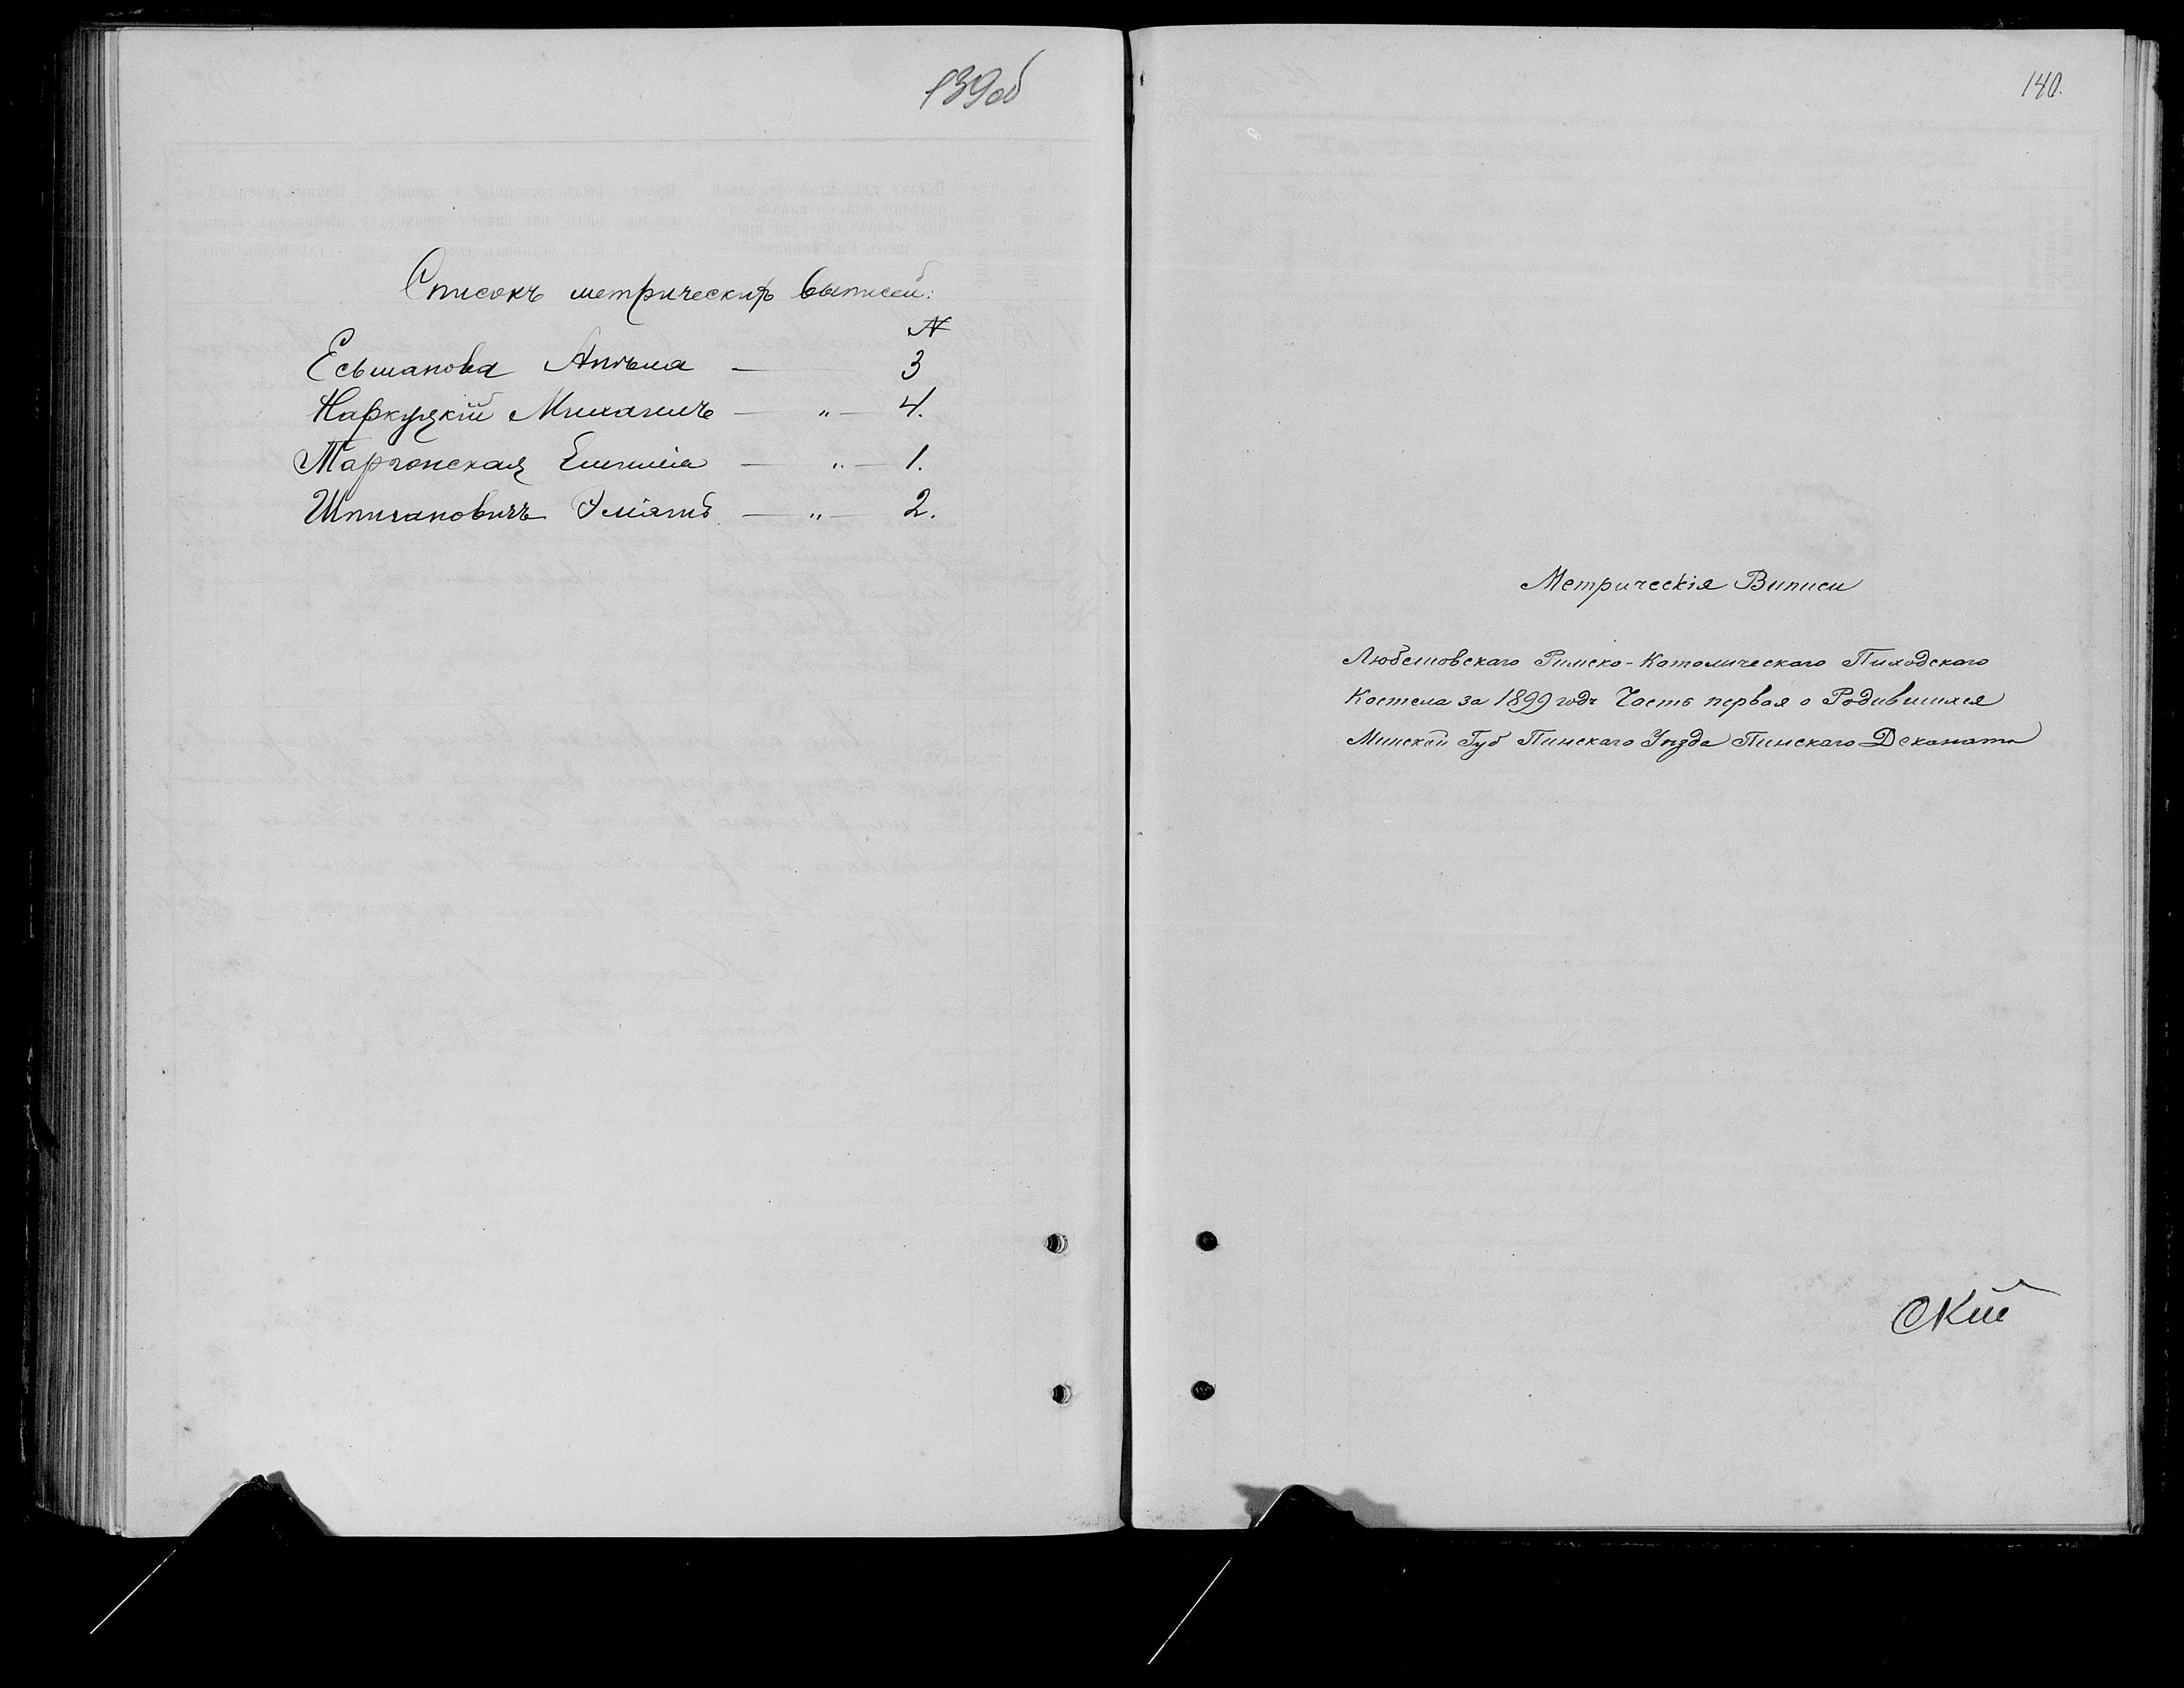 139об
Списокъ метрическихъ выписей:
№
Есьманова Анѣля — 3
Наркускій Михаилъ — „ — 4.
Таргонская Емилія — „ — 1.
Шпигановичъ — „ — 2.
140.
Метрическія Виписи
Любешовскаго Римско-Католическаго Пиходскаго
Костела за 1899 годъ Часть первая о Родившихся
Минской Губ Пинскаго Уѣзда Пинскаго Деканата
Скій